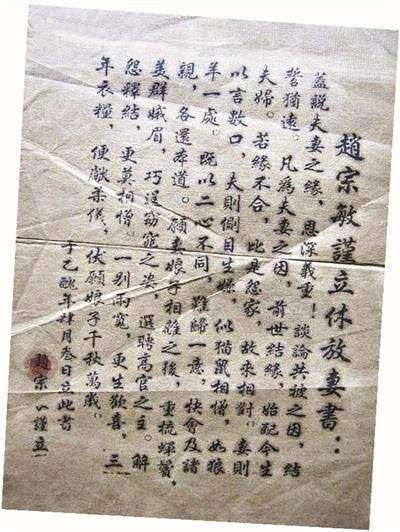 趙宗敏謹立休放妻書：：
蓋說夫妻之緣，恩深義重！談論共被之因，結
誓猶遠。凡為夫妻之因，前世結緣，始配今生
夫婦。若緣不合，比是怨家，故來相對。妻則
以言數口，夫則側目生嫌，似猫鼠相憎，如狼
羊一處。既以二心不同，難歸一意，快會及諸
親，各還本道。願妻娘子相離之後，重梳蟬鬢，
美群娥眉，巧逞窈窕之姿，選聘高官之主。解
怨釋結，更莫相憎。一別兩寬，更生歡喜，三
年衣糧，便獻柔儀。伏願娘子千秋萬歲。
于乙醜年肆月叁日立此書
趙宗謹立